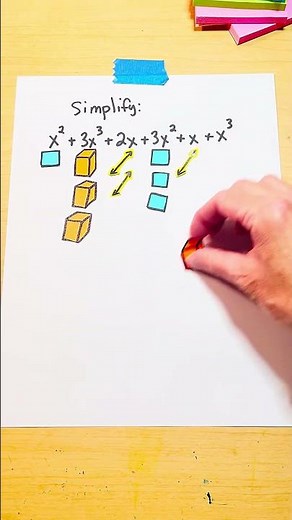 Simplify:
x² + 3x³ + 2x + 3x² + x + x³